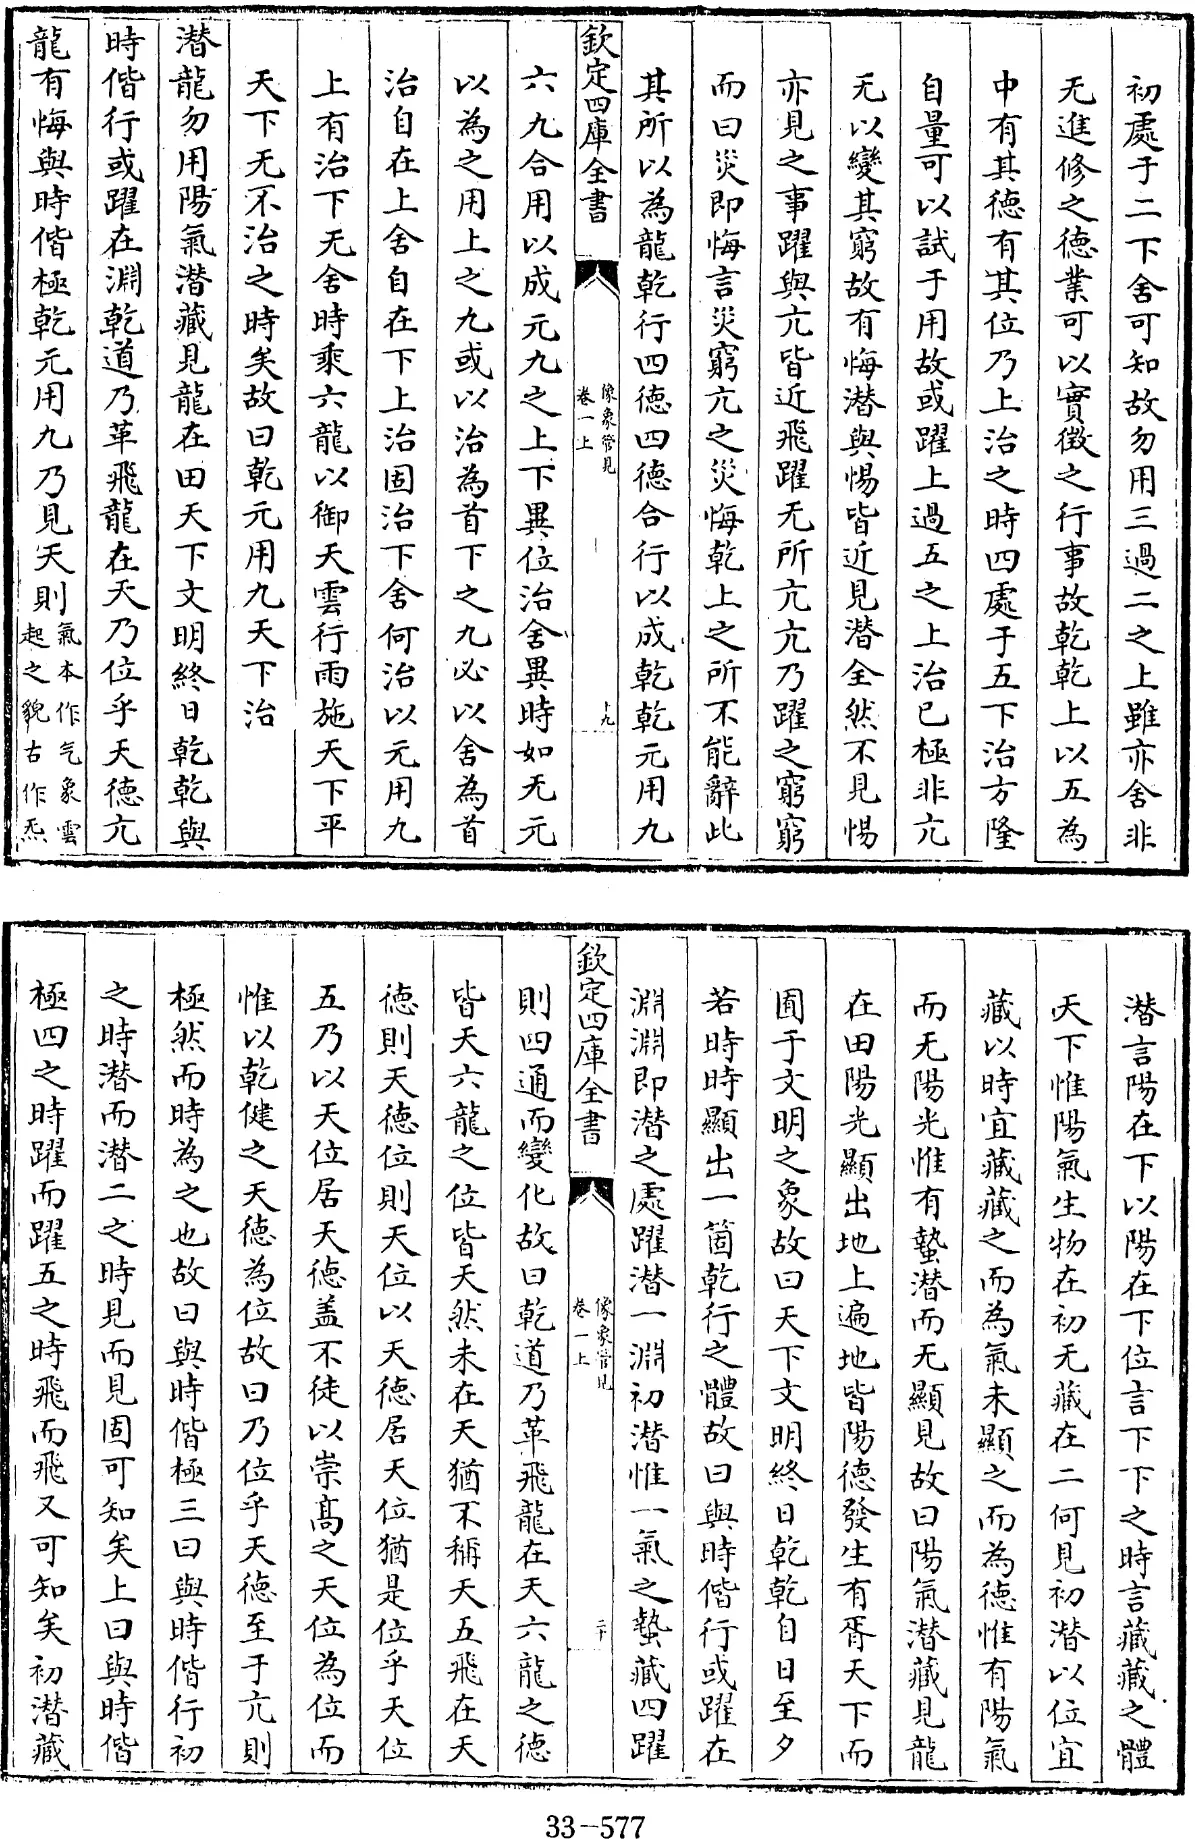 初處于二下舍可知故勿用三過二之上雖亦舍非
无進修之德業可以實徵之行事故乾乾上以五為
中有其德有其位乃上治之時四處于五下治方隆
自量可以試于用故或躍上過五之上治已極非亢
无以變其窮故有悔潛與惕皆近見潛全然不見惕
亦見之事躍與亢皆近飛躍无所亢亢乃躍之窮窮
而曰災即悔言災窮亢之災悔乾上之所不能辭此
其所以為龍乾行四德四德合行以成乾乾元用九
欽定四庫全書
像象管見
卷一上
十九
六九合用以成元九之上下異位治舍異時如无元
以為之用上之九或以治為首下之九必以舍為首
治自在上舍自在下上治固治下舍何治以元用九
上有治下无舍時乘六龍以御天雲行雨施天下平
天下无不治之時矣故曰乾元用九天下治
潛龍勿用陽氣潛藏見龍在田天下文明終日乾乾與
時偕行或躍在淵乾道乃革飛龍在天乃位乎天德亢
龍有悔與時偕極乾元用九乃見天則
氣本作气象雲
起之貌古作炁
潛言陽在下以陽在下位言下下之時言藏藏之體
天下惟陽氣生物在初无藏在二何見初潛以位宜
藏以時宜藏藏之而為氣未顯之而為德惟有陽氣
而无陽光惟有蟄潛而无顯見故曰陽氣潛藏見龍
在田陽光顯出地上遍地皆陽德發生有胥天下而
囿于文明之象故曰天下文明終日乾乾自日至夕
若時時顯出一箇乾行之體故曰與時偕行或躍在
淵淵即潛之處躍潛一淵初潛惟一氣之蟄藏四躍
欽定四庫全書
像象管見
卷一上
二十
則四通而變化故曰乾道乃革飛龍在天六龍之德
皆天六龍之位皆天然未在天猶不稱天五飛在天
德則天德位則天位以天德居天位猶是位乎天位
五乃以天位居天德盖不徒以崇髙之天位為位而
惟以乾健之天德為位故曰乃位乎天德至于亢則
極然而時為之也故曰與時偕極三曰與時偕行初
之時潛而潛二之時見而見固可知矣上曰與時偕
極四之時躍而躍五之時飛而飛又可知矣初潛藏
33-577